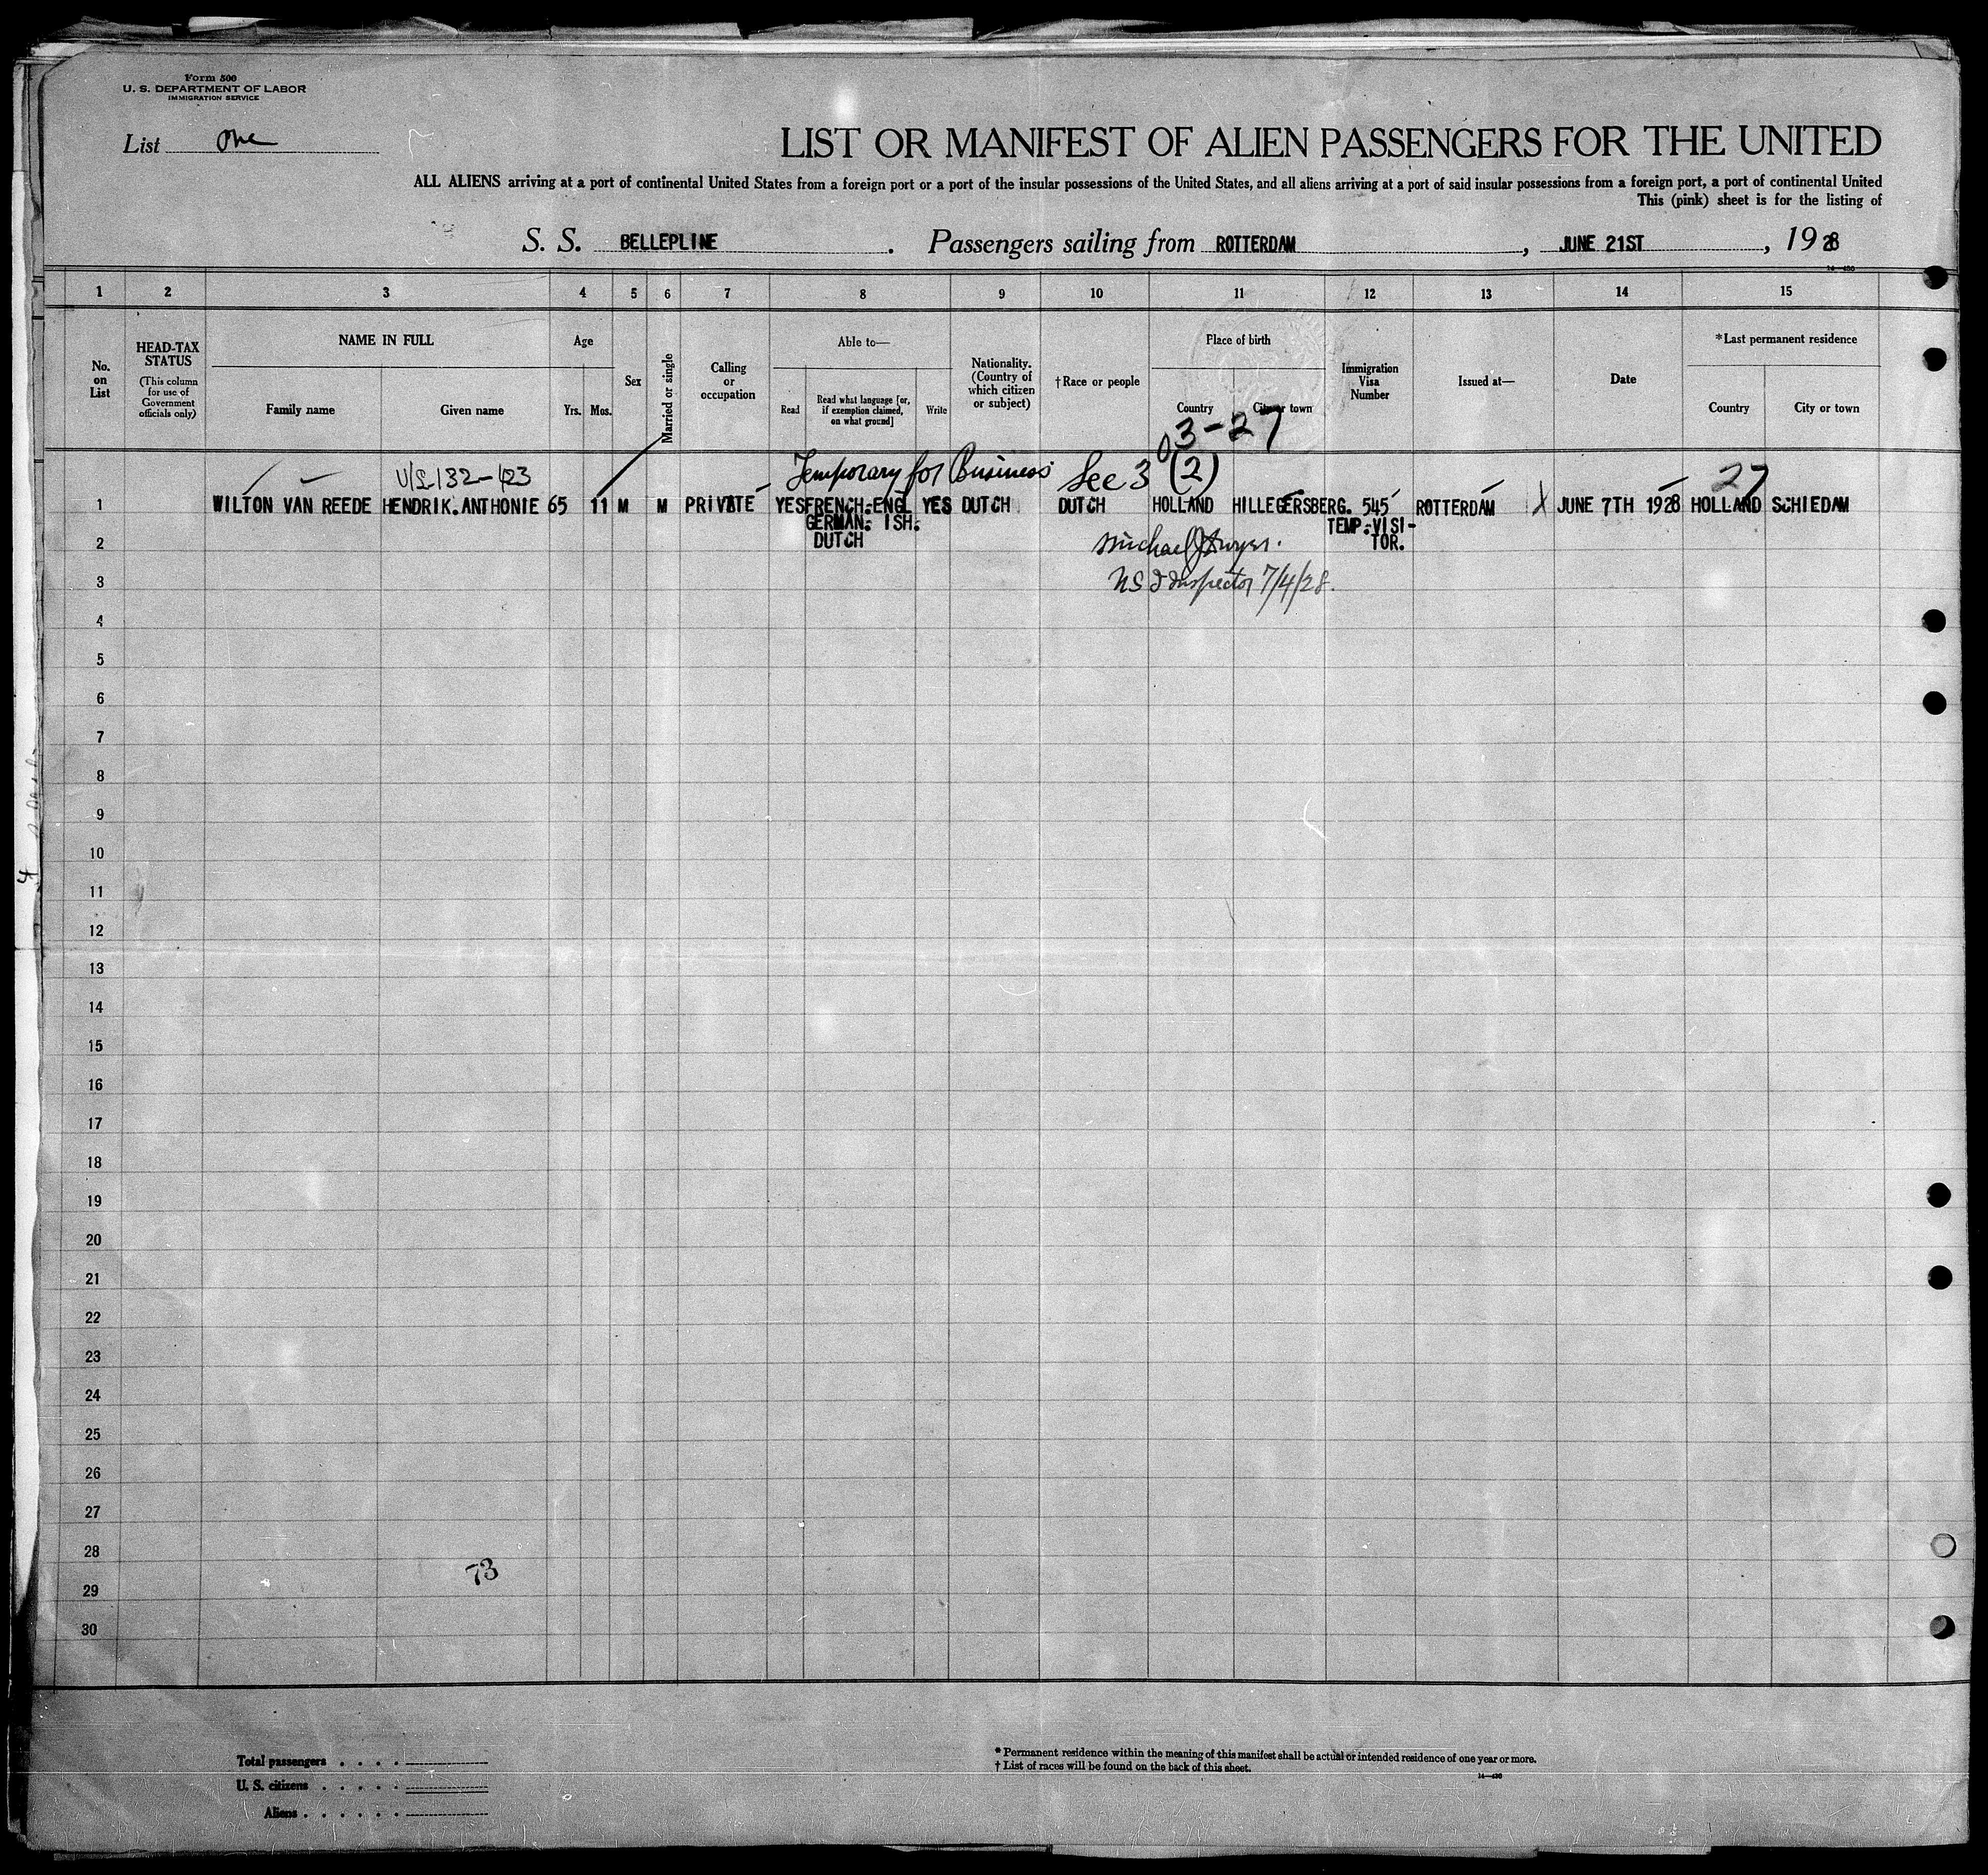 Form 500
U. S. DEPARTMENT OF LABOR
IMMIGRATION SERVICE
List One
LIST OR MANIFEST OF ALIEN PASSENGERS FOR THE UNITED
ALL ALIENS arriving at a port of continental United States from a foreign port or a port of the insular possessions of the United States, and all aliens arriving at a port of said insular possessions from a foreign port, a port of continental United
This (pink) sheet is for the listing of
S. S. BELLEPLINE. Passengers sailing from ROTTERDAM, JUNE 21ST, 1928
1 2 3 4 5 6 7 8 9 10 11 12 13 14 15
No. on List
HEAD-TAX STATUS (This column for use of Government officials only)
NAME IN FULL
Family name Given name
Age
Yrs. Mos.
Sex
Married or single
Calling or occupation
Able to—
Read
Read what language [or, if exemption claimed, on what ground]
Write
Nationality. (Country of which citizen or subject)
†Race or people
Place of birth
Country City or town
Immigration Visa Number
Issued at—
Date
*Last permanent residence
Country City or town
3-27
Temporary for Business See 3 (2)
27
1 WILTON VAN REEDE HENDRIK. ANTHONIE 65 11 M M PRIVATE YES FRENCH-ENGL YES DUTCH DUTCH HOLLAND HILLEGERSBERG. 545 ROTTERDAM X JUNE 7TH 1928 HOLLAND SCHIEDAM
GERMAN- ISH. TEMP-VISI-
2 DUTCH Michael J Dwyer. TOR.
3 US I Inspector 7/4/28.
4
5
6
7
8
9
10
11
12
13
14
15
16
17
18
19
20
21
22
23
24
25
26
27
28
73
29
30
Total passengers . . . .
U. S. citizens . . . . .
Aliens . . . . . .
* Permanent residence within the meaning of this manifest shall be actual or intended residence of one year or more.
† List of races will be found on the back of this sheet.